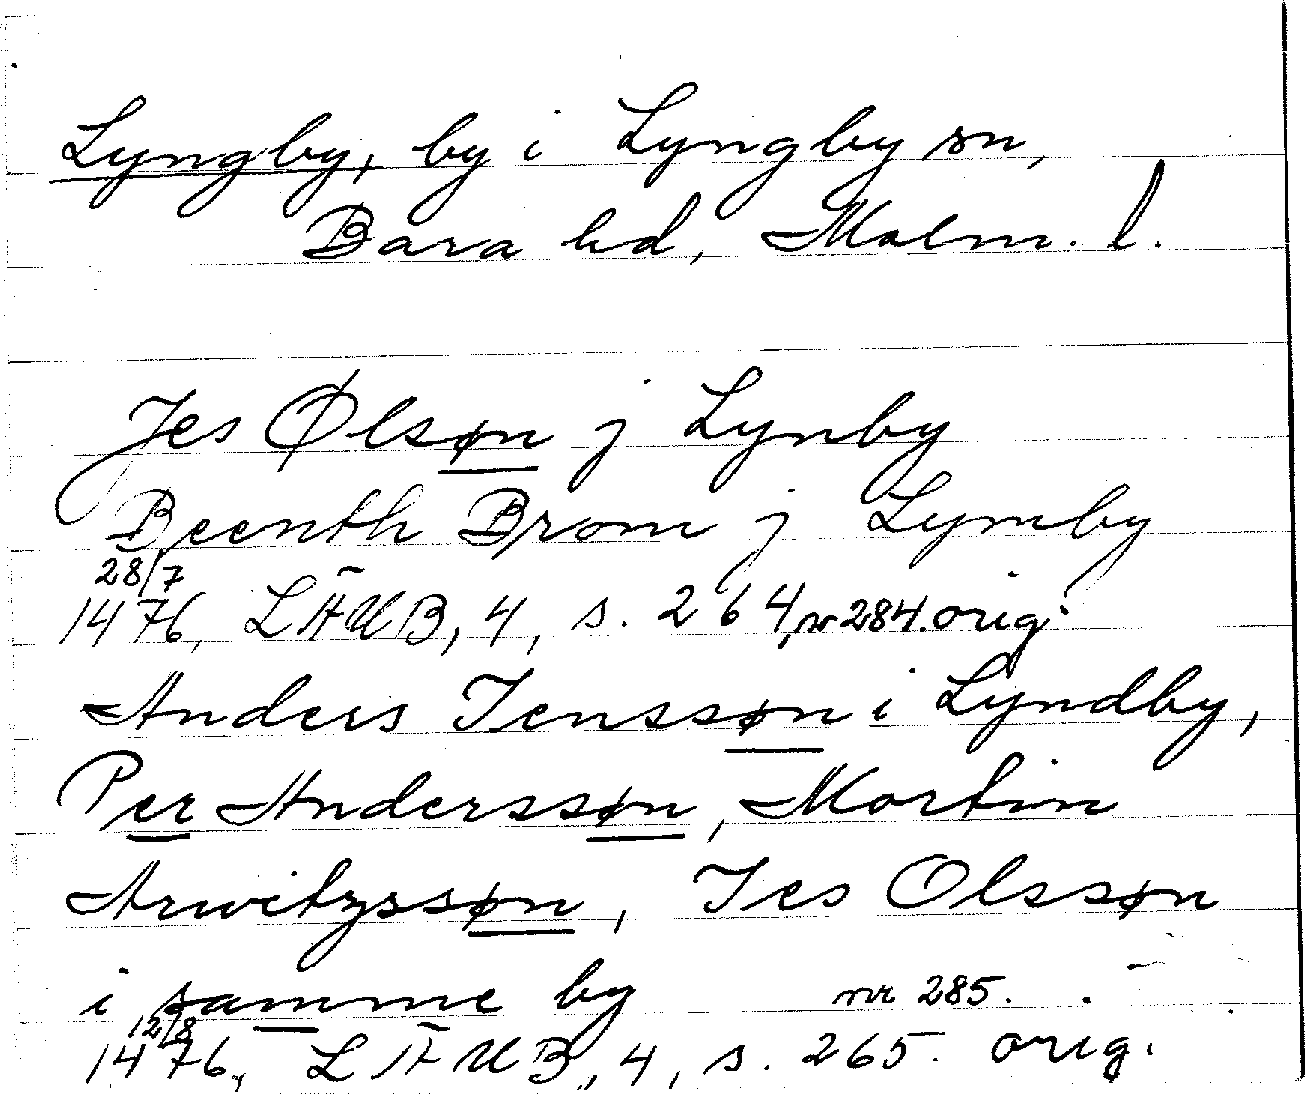 Lyngby, by i Lyngby sn,
Bara hd, Malm. l.
Jes Ølsøn j Lynby
Beenth Brom j Lymby
28/7
1476, LÄUB, 4, s. 264, nr 284. orig.
Anders Jenssøn i Lyndby,
Per Anderssøn, Mortin
Arwitzssøn, Jes Olssøn
i samme by nr 285.
12/8
1476, LÄUB, 4, s. 265. orig.